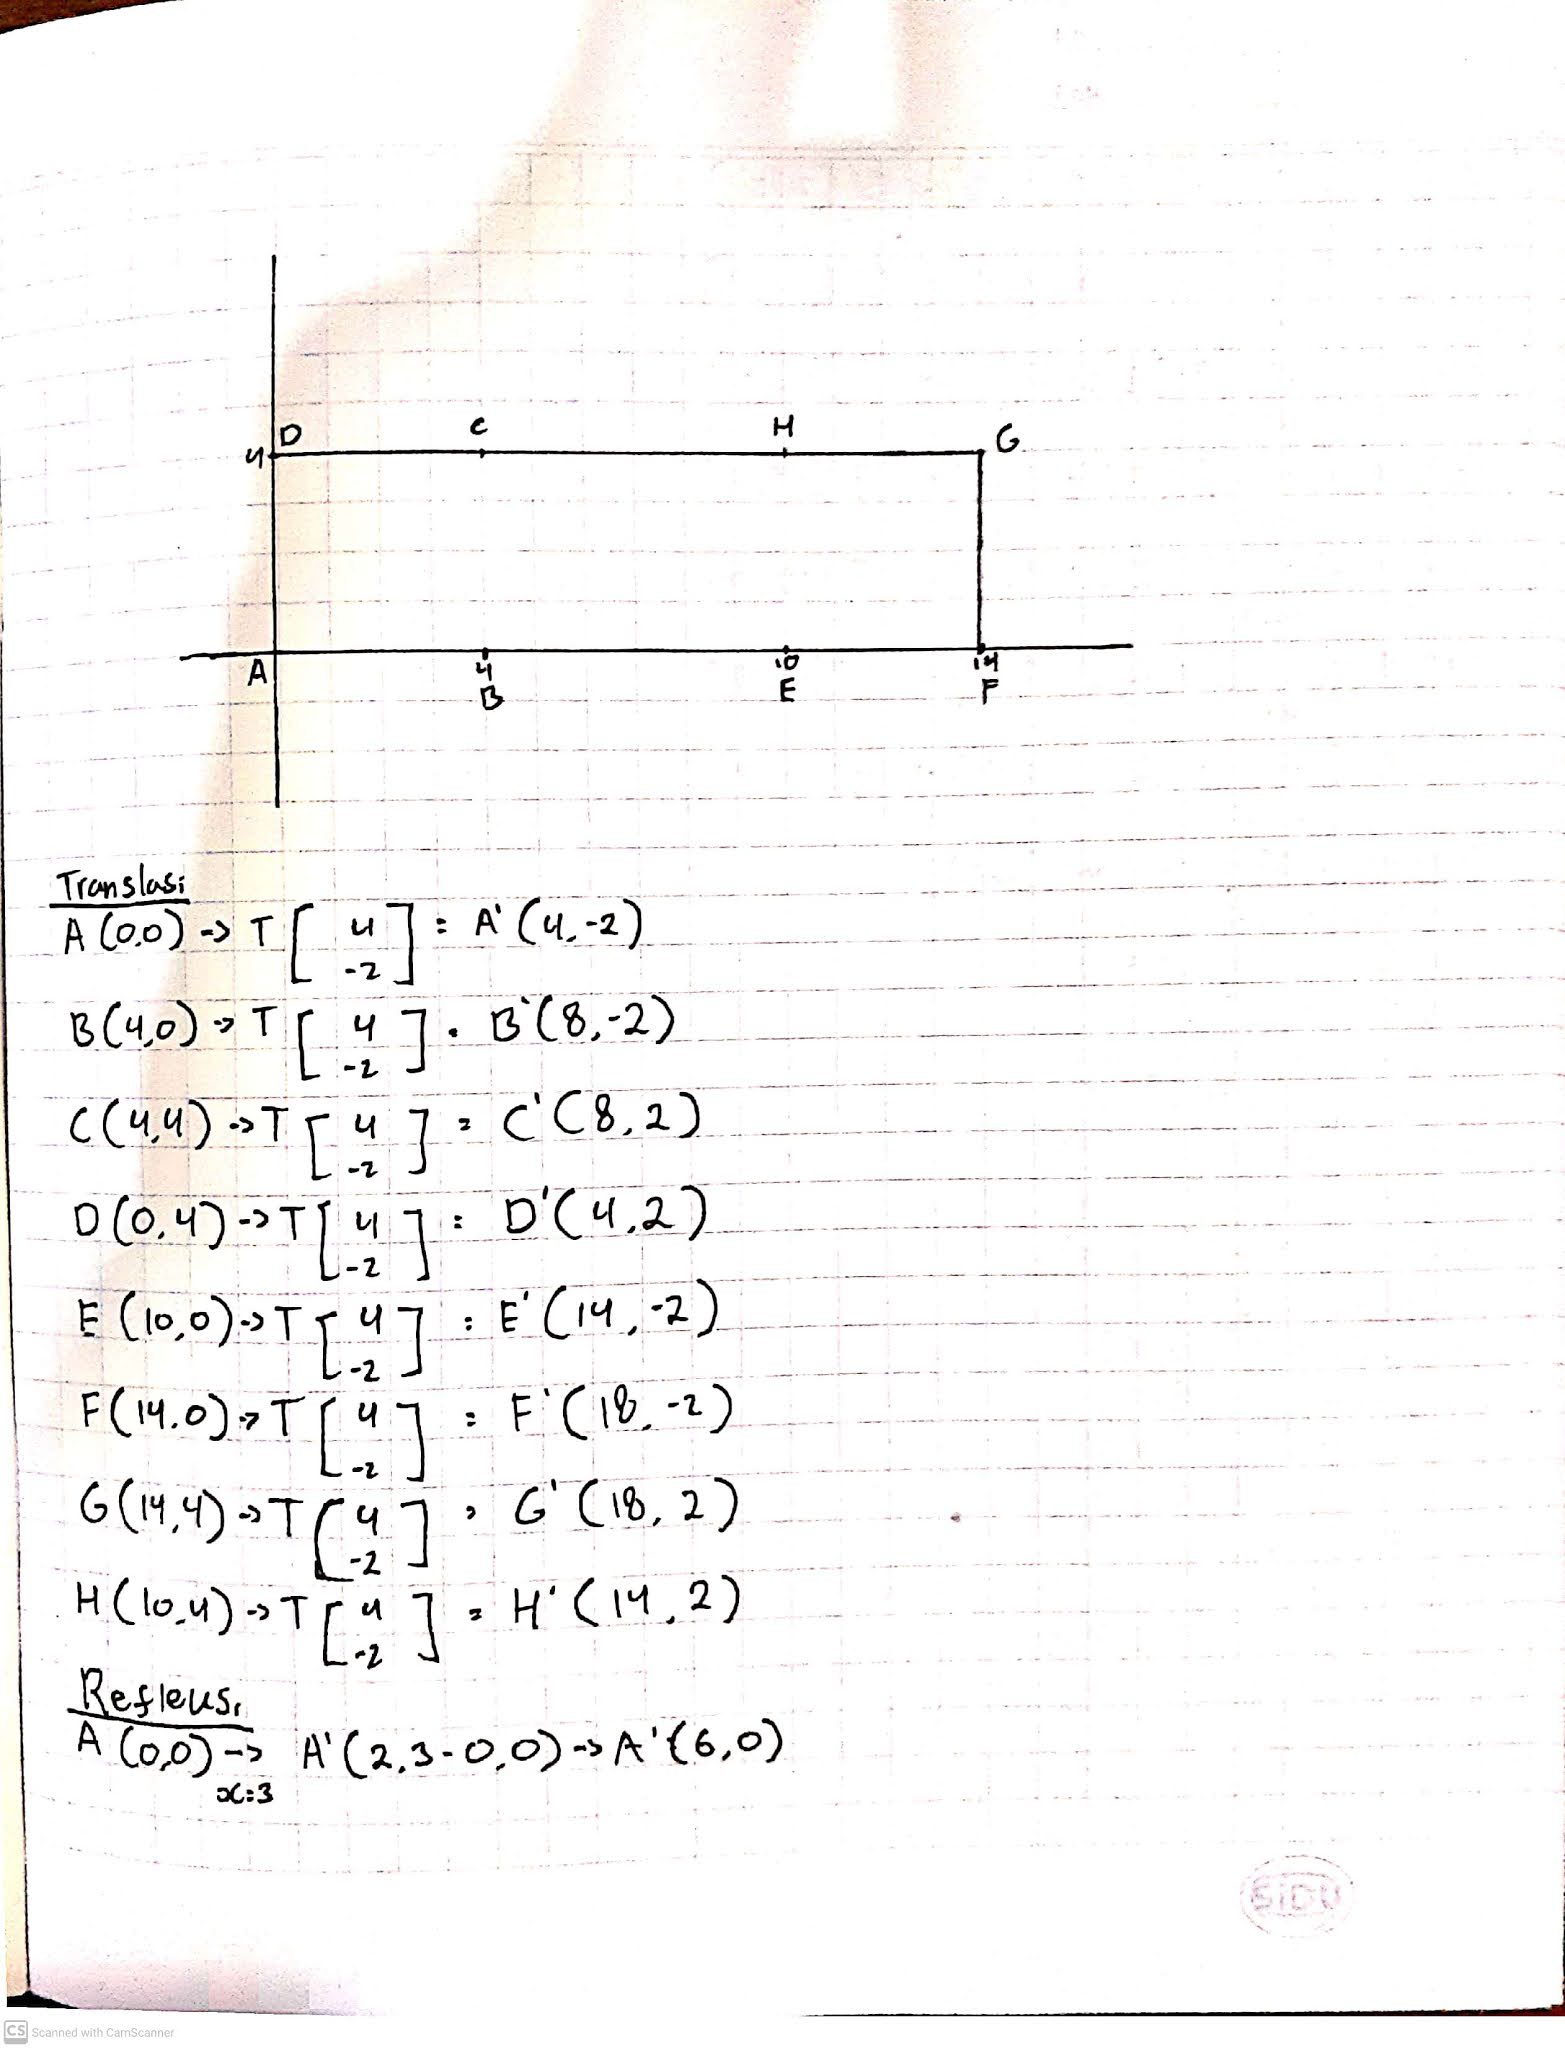 D C H G
4
A 4 10 14
B E F
Translasi
A (0,0) -> T [ 4 ] = A' (4,-2)
-2
B(4,0) -> T [ 4 ] = B'(8,-2)
-2
C(4,4) -> T [ 4 ] = C'(8,2)
-2
D(0,4) -> T [ 4 ] = D'(4,2)
-2
E (10,0) -> T [ 4 ] = E'(14,-2)
-2
F(14,0) -> T [ 4 ] = F'(18,-2)
-2
G(14,4) -> T [ 4 ] = G'(18,2)
-2
H(10,4) -> T [ 4 ] = H'(14,2)
-2
Refleksi
A (0,0) -> A'(2.3-0,0) -> A'(6,0)
x=3
SiDU
CS Scanned with CamScanner